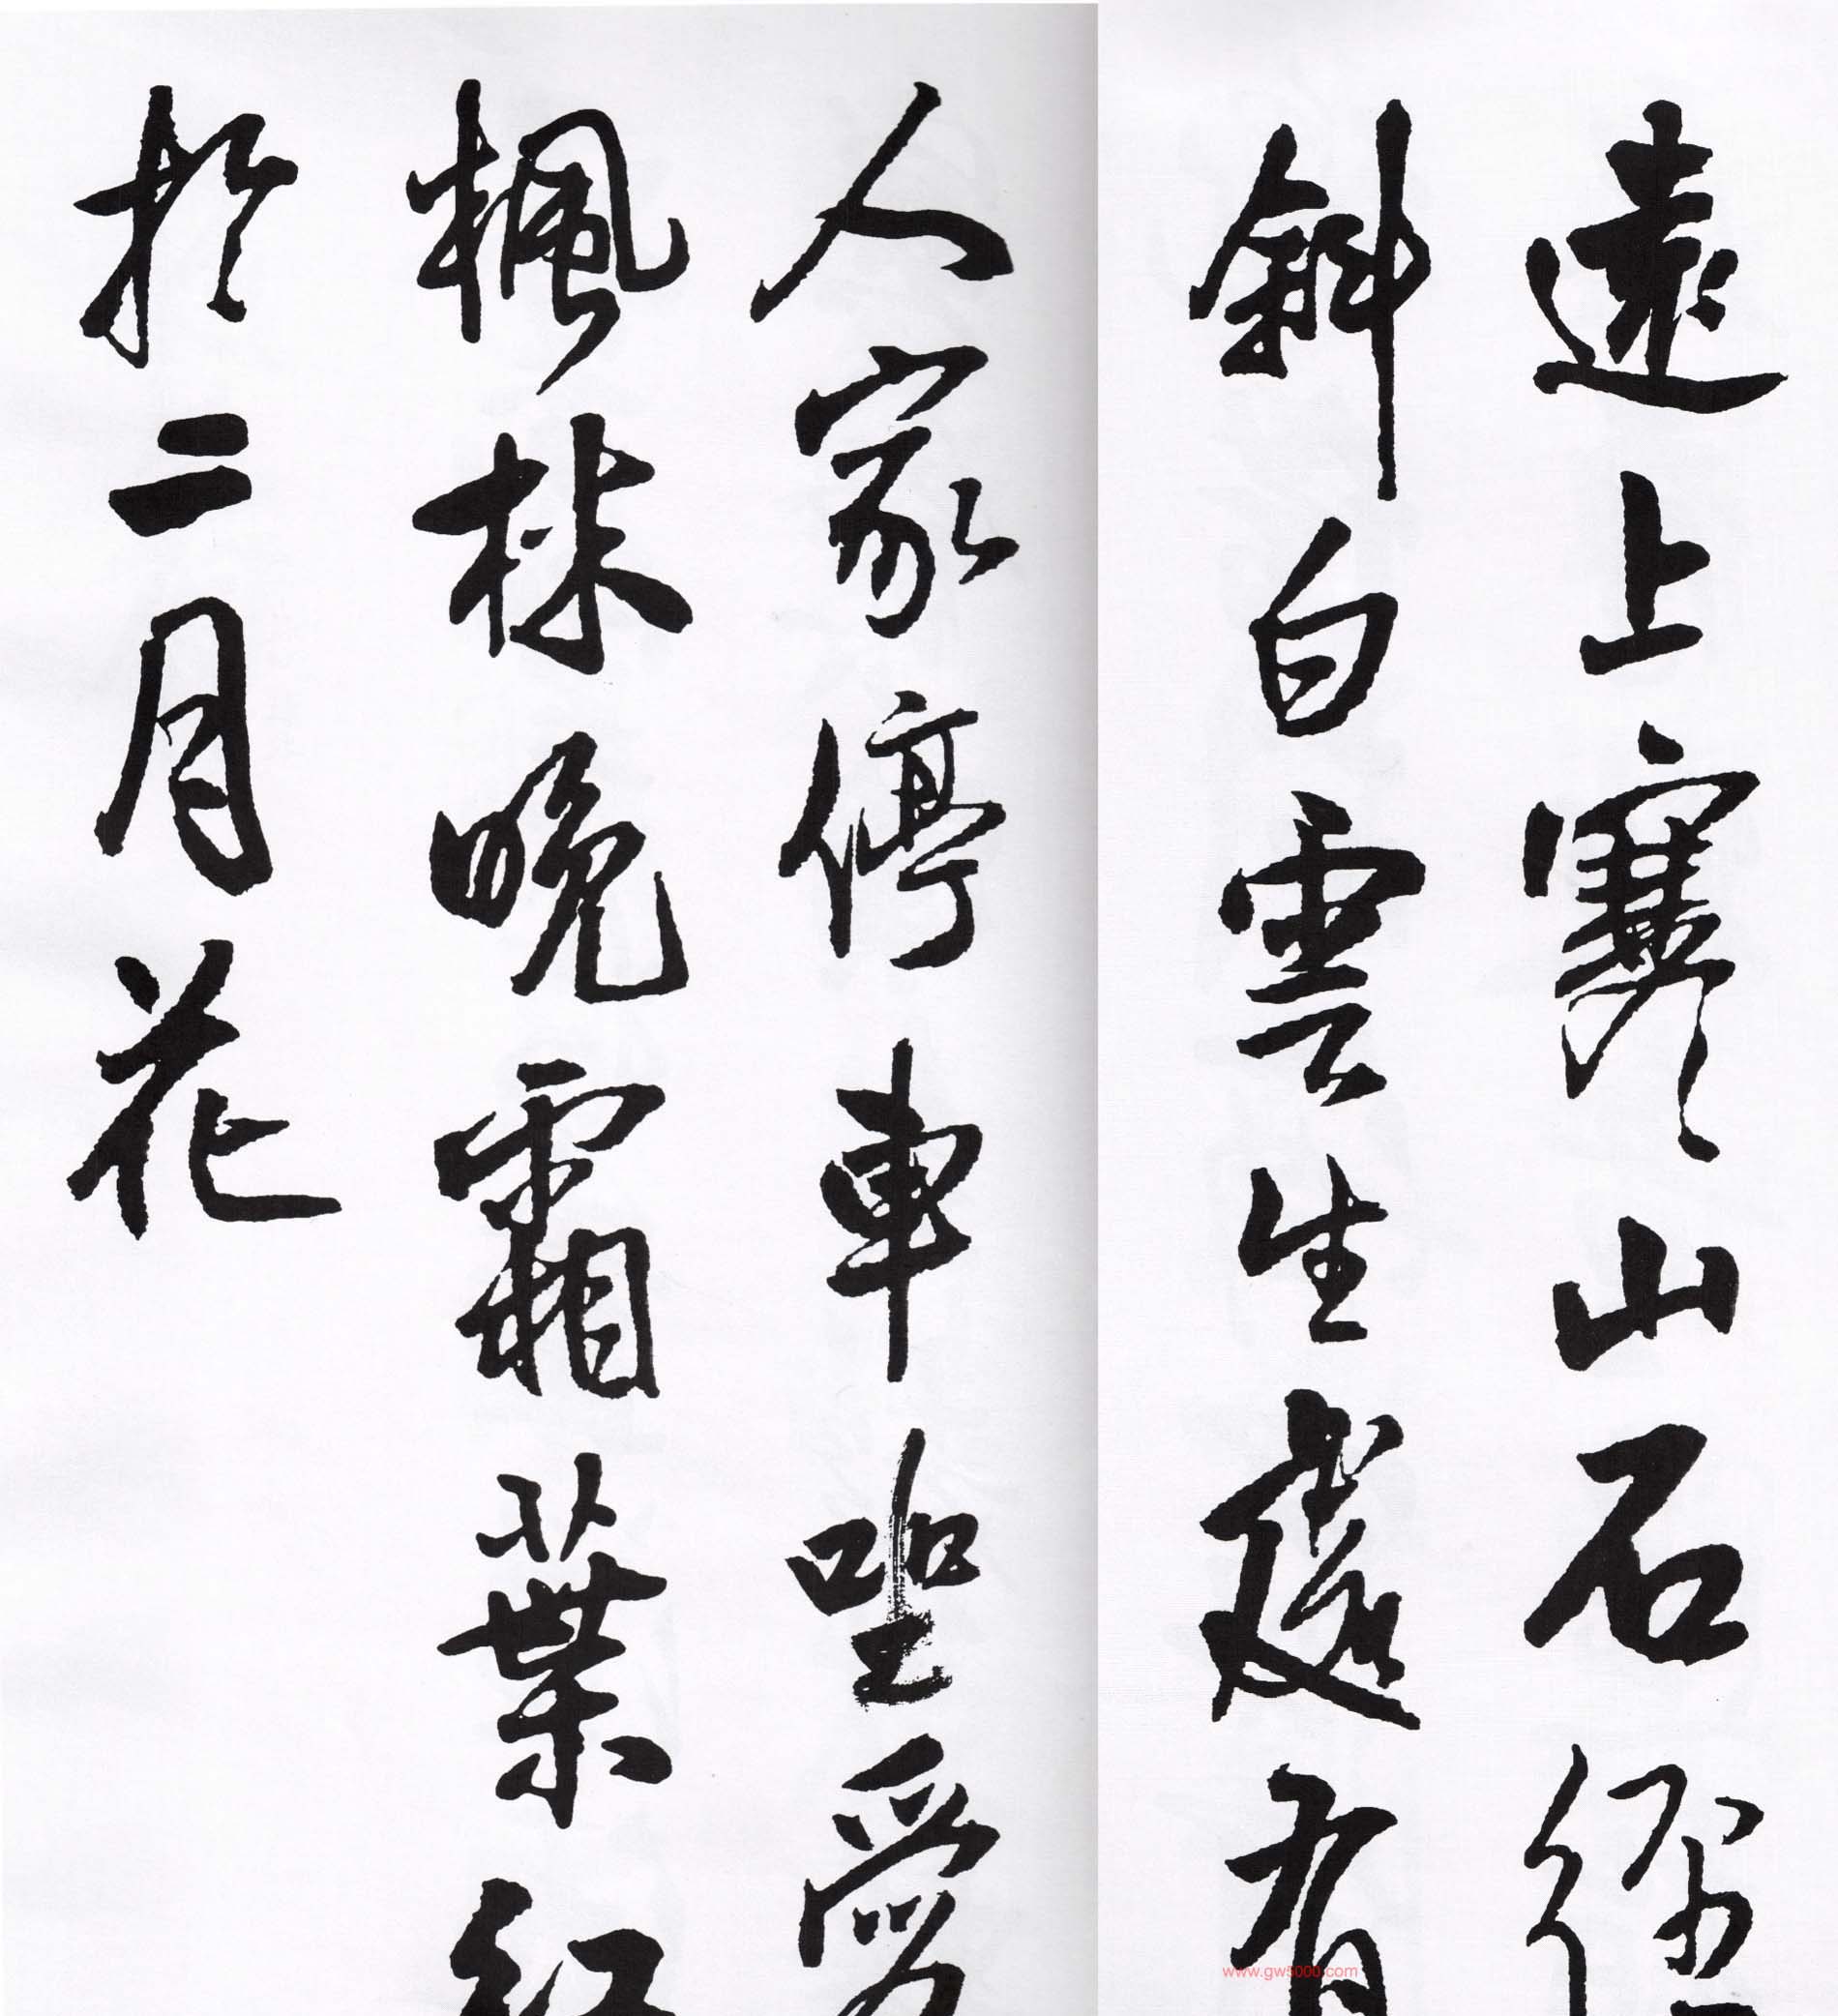 遠上寒山石徑
斜白雲生處有
人家停車坐愛
楓林晚霜葉紅
於二月花
www.gw5000.com